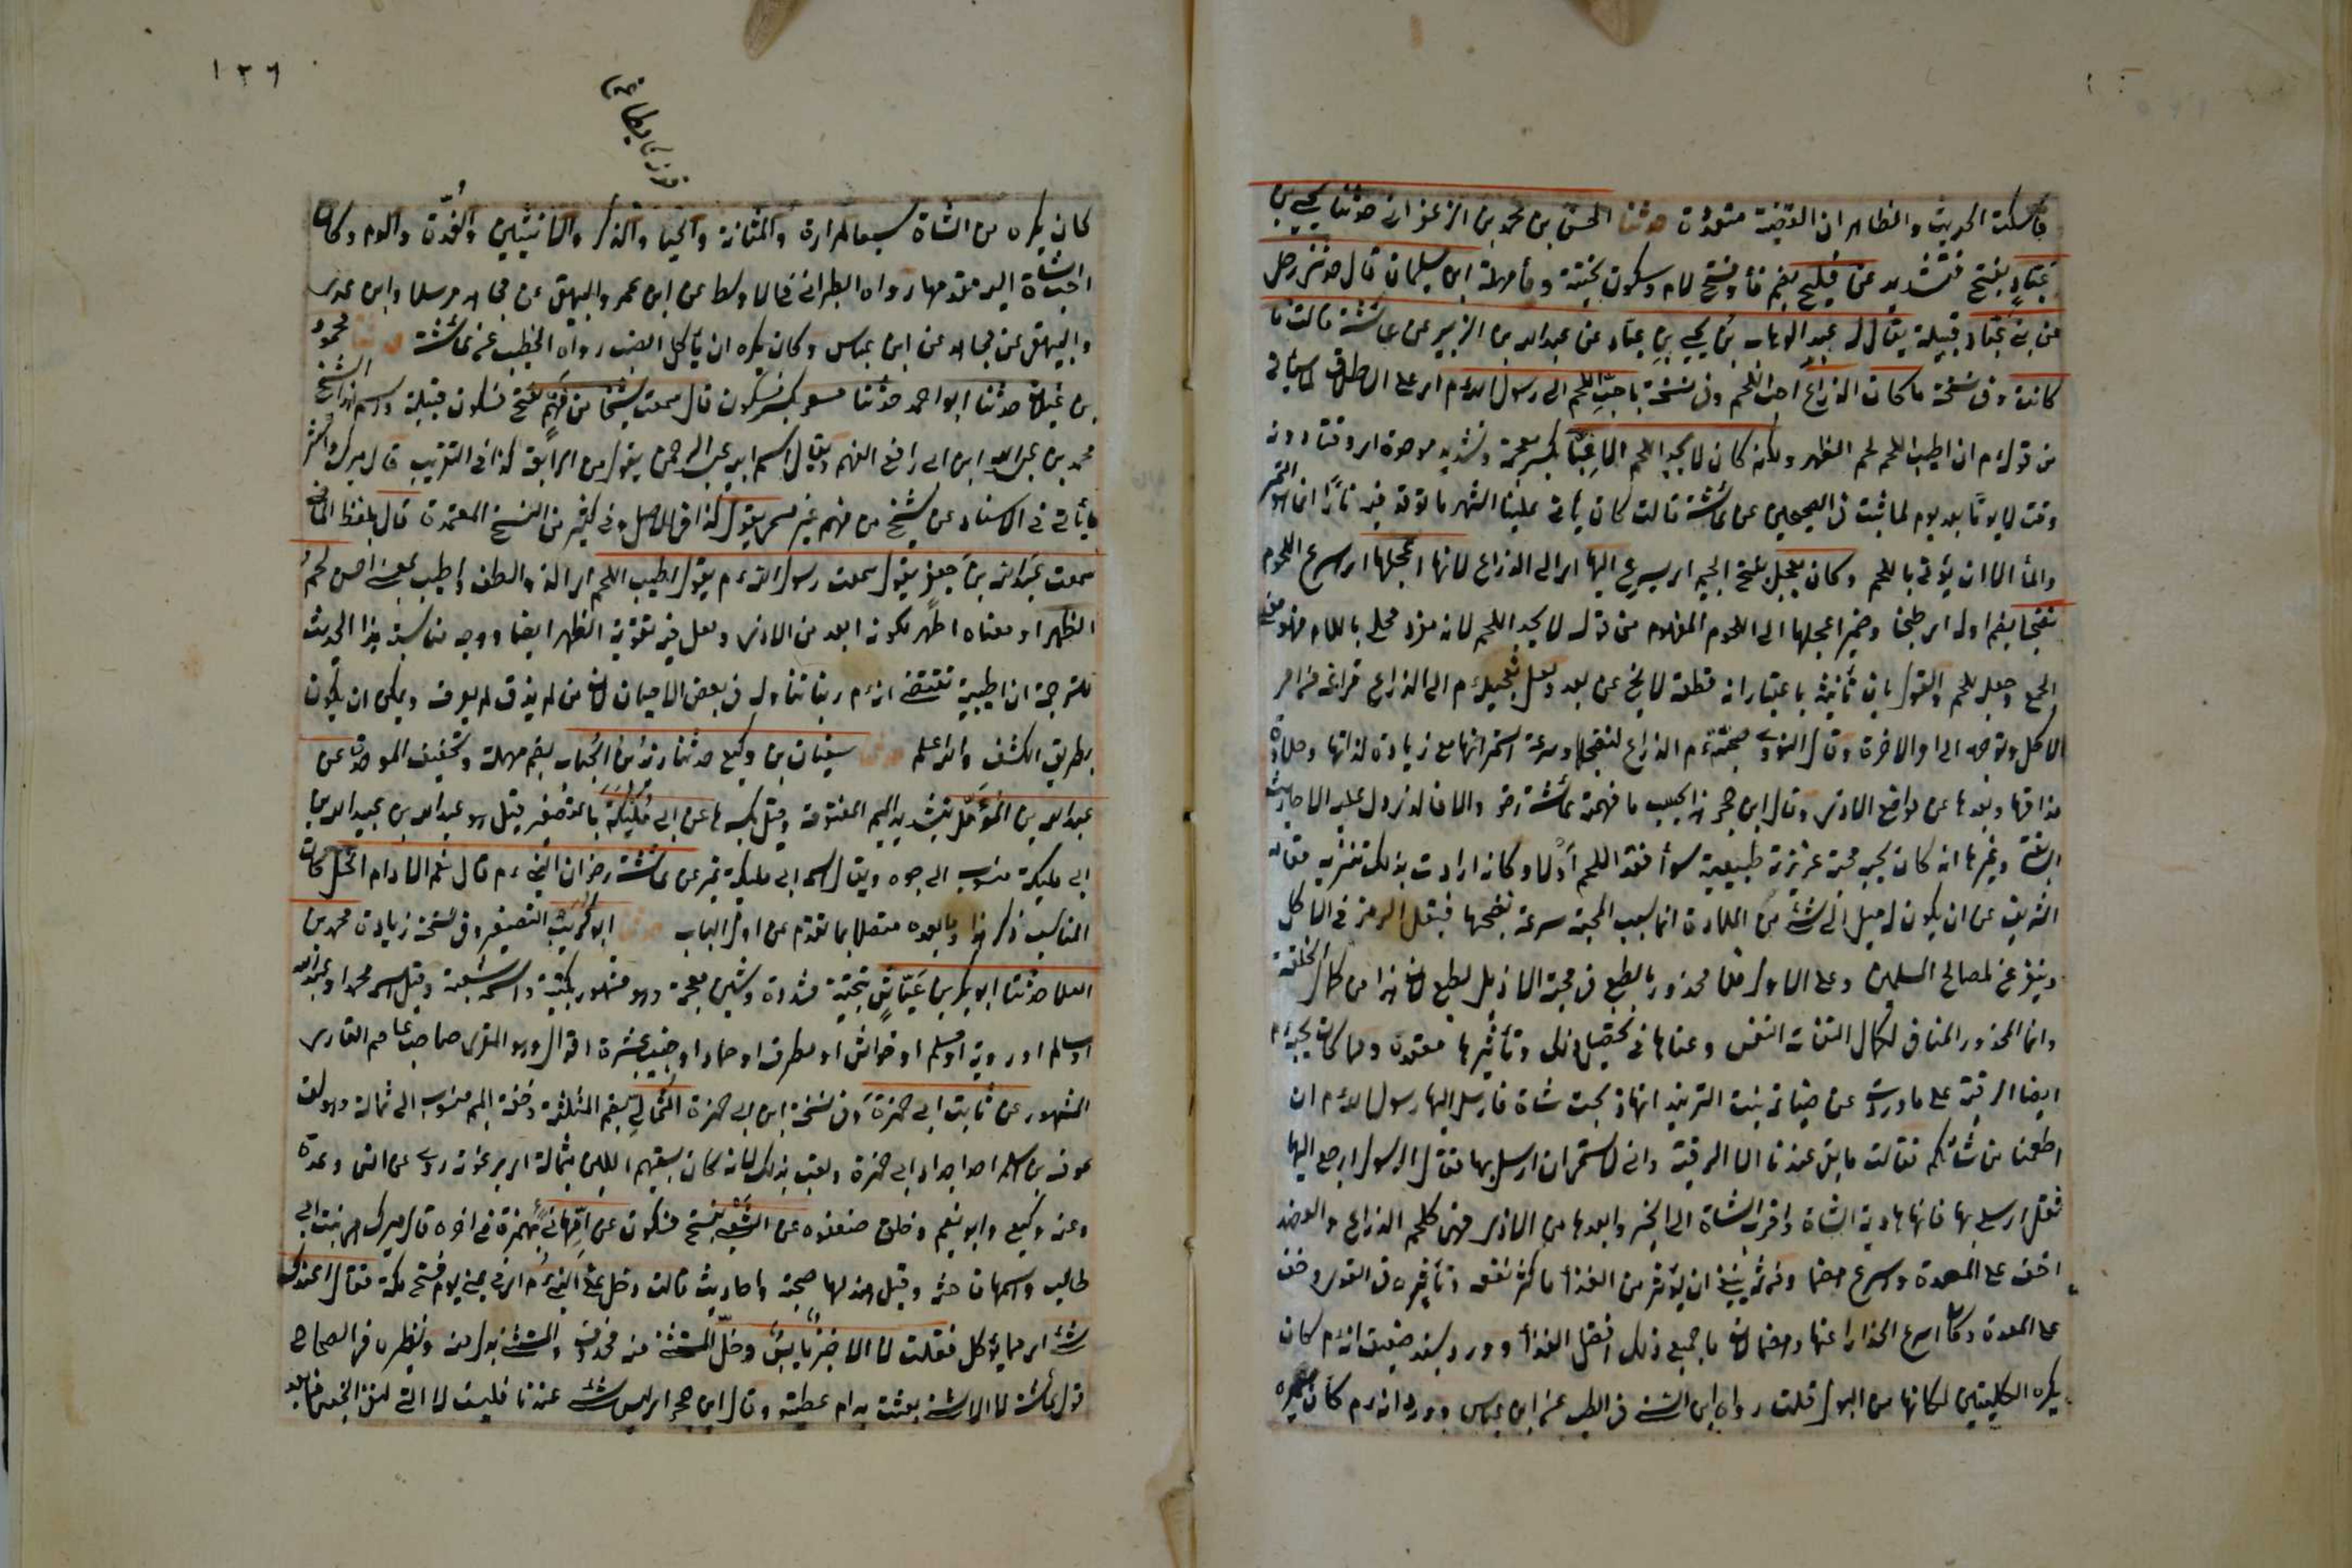 فاسكت الحديث والظاهر ان القضية متعددة حدثنا الحسن بن محمد بن الزعفراني حدثنا يحيى بن
عباد بفتح فتشديد عن فليح بضم فاء وفتح لام وسكون تحتية وحاء مهملة ابن سليمان قال حدثني رجل
من بني عباد قبيلة يقال له عبد الوهاب بن يحيى بن عباد عن عبد الله بن الزبير عن عائشة قالت ما
كانت وفي نسخة ما كان الذراع احب اللحم وفي نسخة باحب اللحم الى رسول الله ءم اي على الاطلاق لما سيأتي
من قوله ءم ان اطيب اللحم لحم الظهر ولكنه كان لا يجد اللحم الا غبا بكسر معجمة وتشديد موحدة اي وقتا دون
وقت لا يوما بعد يوم لما ثبت في الصحيحين عن عائشة قالت كان يأتي علينا الشهر ما نوقد فيه نارا انما هو التمر
والماء الا ان نؤتى باللحم وكان يعجل بفتح الجيم اي يسرع اليها اي الى الذراع لانها اعجلها اي اسرع اللحوم
نضجا بضم اوله اي طبخا وضمير اعجلها الى اللحوم المفهوم من قوله لا يجد اللحم لانه مفرد محلى باللام فهو في معنى
الجمع وجعل اللحم والقول بان تأنيثه باعتبار انه قطعة لا يخ عن بعد ولعل تعجيله ءم الى الذراع فراغه من امر
الاكل وتوجهه الى امر الاخرة وقال النووي محبته ءم الذراع لنضجها وسرعة استمرائها مع زيادة لذتها وحلاوة
مذاقها وبعدها عن مواضع الاذى وقال ابن حجر هذا بحسب ما فهمته عائشة رض والا فالذي دل عليه الاحاديث
السابقة وغيرها انه كان يحبه محبة غريزية طبيعية سواء فقد اللحم ام لا وكانه ارادت بذلك تنزيه مقامه
الشريف عن ان يكون له ميل الى شيء من الملاذ انما سبب المحبة سرعة نضجها فيقل الزمن في الاكل
ويتفرغ لمصالح المسلمين وعلى الاول فلا محذور بالطبع في محبة الملاذ بل الطبع لان هذا من كمال الخلقة
وانما المحذور المنافي للكمال التفات النفس وعناؤها في تحصيل ذلك وتأثيرها لفقده ومما كان يحبه ءم
ايضا الرقبة على ما ورد عن ضباعة بنت الزبير انها ذبحت شاة فارسل اليها رسول الله ءم ان
اطعمينا من شاتكم فقالت ما بقي عندنا الا الرقبة واني لاستحي ان ارسل بها فقال للرسول ارجع اليها
فقل ارسلي بها فانها هادية الشاة واقرب الشاة الى الخير وابعدها من الاذى فهي كلحم الذراع والعضد
اخف على المعدة واسرع هضما ومن ثم ينبغي ان يؤثر من الغذاء ما كثر نفعه وتأثيره في القوى وخف
على المعدة وكان اسرع انحدارا عنها وهضما لان ما جمع ذلك افضل الغذاء وورد بسند ضعيف انه ءم كان
يكره الكليتين لمكانهما من البول قلت رواه ابن السني في الطب عن ابن عباس وورد انه ءم كان يكره
١٣٦
كان يكره من الشاة سبعا المرارة والمثانة والحيا والذكر والانثيين والغدة والدم وكان
احب الشاة اليه مقدمها رواه الطبراني في الاوسط عن ابن عمر والبيهقي عن مجاهد مرسلا وابن عدي
والبيهقي عن مجاهد عن ابن عباس وكان يكره ان يأكل الضب رواه الخطيب عن عائشة حدثنا محمود
بن غيلان حدثنا ابو احمد حدثنا مسعر بكسر فسكون قال سمعت شيخا من فهم بفتح فسكون قبيلة واسم هذا الشيخ
محمد بن عبد الله ابن ابي رافع الفهمي ويقال اسم ابيه عبد الرحمن يقول من الرابعة كذا في التقريب قال ميرك واكثر
ما يأتي في الاسناد عن شيخ من فهم غير مسمى يقول كذا في الاصل وفي كثير من النسخ المعتمدة قال بلفظ الماضي
سمعت عبد الله بن جعفر يقول سمعت رسول الله ءم يقول اطيب اللحم اي الذ والطف واطيب بمعنى احسن لحم
الظهر او معناه اطهر لكونه ابعد من الاذى ولعل فيه تقوية الظهر ايضا ووجه مناسبة هذا الحديث
للترجمة ان اطيبيته تقتضي انه ءم ربما تناوله في بعض الاحيان لان من لم يذق لم يعرف ويمكن ان يكون
بطريق الكشف والله اعلم حدثنا سفيان بن وكيع حدثنا زيد بن الحباب بضم مهملة وتخفيف الموحدة عن
عبد الله بن المؤمل بتشديد الميم المفتوحة وقيل بكسرها عن ابن ابي مليكة بالتصغير قيل هو عبد الله بن عبيد الله بن
ابي مليكة منسوب الى جده ويقال اسم ابي مليكة زهير عن عائشة رض ان النبي ءم قال نعم الادام الخل كان
المناسب ذكر هذا وما بعده متصلا بما تقدم عن اول الباب حدثنا ابو كريب بالتصغير وفي نسخة زيادة محمد بن
العلا حدثنا ابو بكر بن عياش بتحتية مشددة وشين معجمة وهو مشهور بكنيته واسمه شعبة وقيل اسمه محمد او عبد الله
او سالم او روبة او مسلم او خداش او مطرف او حماد او حبيب عشرة اقوال وهو المقرئ صاحب عاصم القارئ
المشهور عن ثابت ابي حمزة وفي نسخة ابن ابي حمزة الثمالي بضم المثلثة وخفة الميم منسوب الى ثمالة وهو لقب
عوف بن اسلم احد اجداد ابي حمزة ولقب بذلك لانه كان يسقيهم اللبن بثمالة اي برغوته روى عن انس وعدة
وعنه وكيع وابو نعيم وخلق ضعفوه عن الشعبي بفتح فسكون عن ام هانئ بهمزة في اخره قال ميرك هي بنت ابي
طالب واسمها فاختة وقيل هند لها صحبة واحاديث قالت دخل علي النبي ءم اي في بيتي يوم فتح مكة فقال اعندك
شيء اي مما يؤكل فقلت لا الا خبز يابس وخل المستثنى منه محذوف والمستثنى بدل منه ونظيره في الصحاح
قول عائشة لا الا شيء بعثت به ام عطية وقال ابن حجر اي ليس شيء عندنا فليست لا التي لنفي الجنس